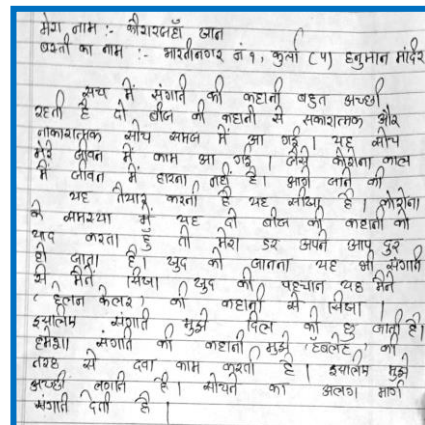 मेरा नाम :- कौसरजहाँ खान
बस्ती का नाम :- भारतीनगर नं १, कुर्ला (प) हनुमान मंदिर
सच में संगाती की कहानी बहुत अच्छी
रहती है दो बीज की कहानी से सकारात्मक और
नाकारात्मक सोच समज में आ गई। यह सोच
मेरे जीवन में काम आ गई। जैसे कोरोना काल
में जीवन में हारना नहीं है। आगे जाने की
यह तैयारी करनी है यह सीखा है। कोरोना
के समस्या में यह दो बीज की कहानी को
याद करता हुँ तो मेरा डर अपने आप दुर
हो जाता है। खुद को जानना यह भी संगाती
से मैंने सिखा। खुद की पहचान यह मैंने
(हेलन केलर) की कहानी से सिखा।
इसलिए संगाती मुझे दिल को छु जाती है।
हमेशा संगाती की कहानी मुझे (टॅबलेट) की
तरह से दवा काम करती है। इसलिए मुझे
अच्छी लगती है। सोचने का अलग मार्ग
संगाती देती है।